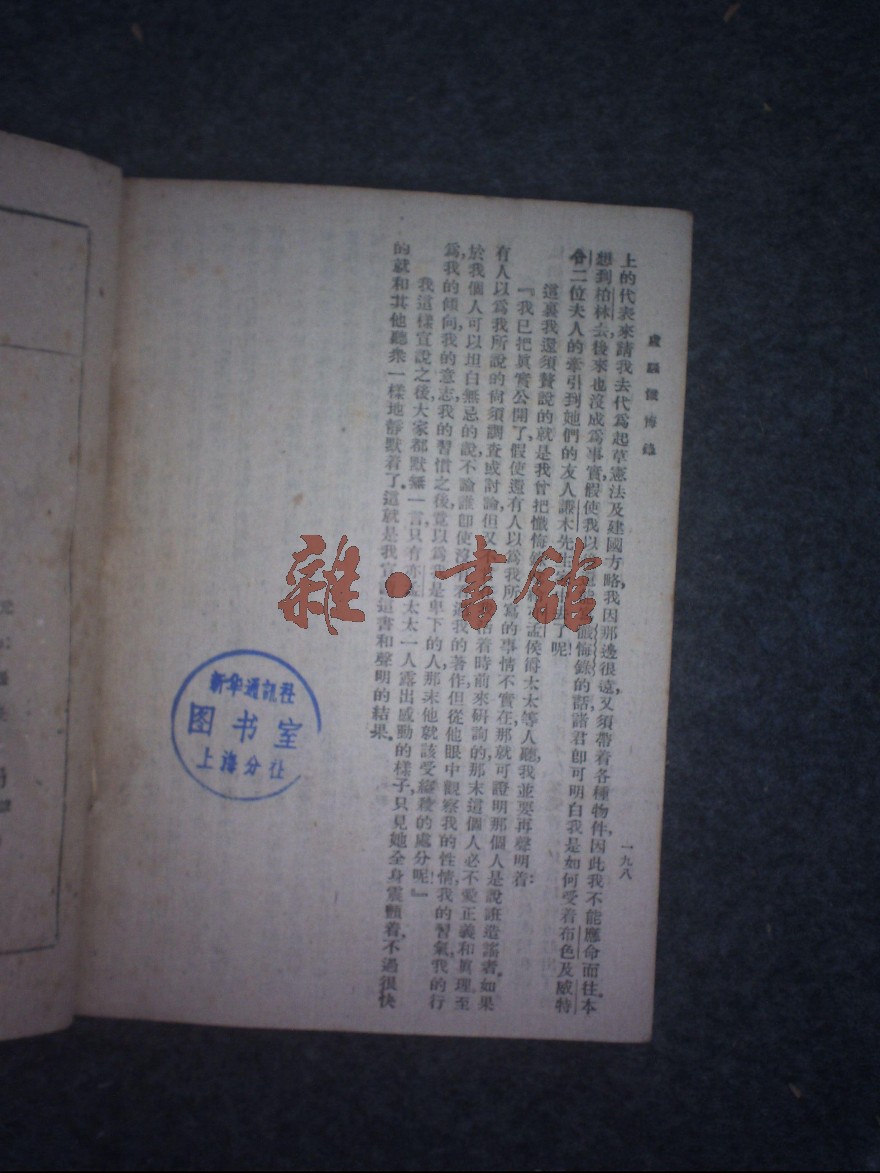 盧騷懺悔錄
一九八
上的代表來請我去代爲起草憲法及建國方略，我因那邊很遠，又須帶着各種物件，因此我不能應命而往。本
想到柏林去後來也沒成爲事實，假使我以 懺悔錄的話，諸君即可明白我是如何受着布色及威特
令二位夫人的牽引到她們的友人 木先生 了呢！
這裏我還須贅說的就是我曾把懺悔 孟侯爵太太等人聽，我並要再聲明着：
『我已把眞實公開了，假使還有人以爲我所寫的事情不實在，那就可證明那個人是說誑造謠者。如果
有人以爲我所說的尙須調查或討論，但又 活着時前來硏詢的，那末這個人必不愛正義和眞理。至
於我個人可以坦白無忌的說，不論誰即使沒有 過我的著作，但從他眼中觀察我的性情，我的習氣，我的行
爲，我的傾向，我的意志，我的習慣之後，竟以爲我是卑下的人，那末他就該受 的處分呢！』
我這樣宣說之後，大家都默無一言，只有 孟太太一人露出感動的樣子，只見她全身震顫着，不過很快
的就和其他聽衆一樣地靜默着了。這就是我宣 這書和聲明的結果。
雜·書館
新华通訊社
图书室
上海分社